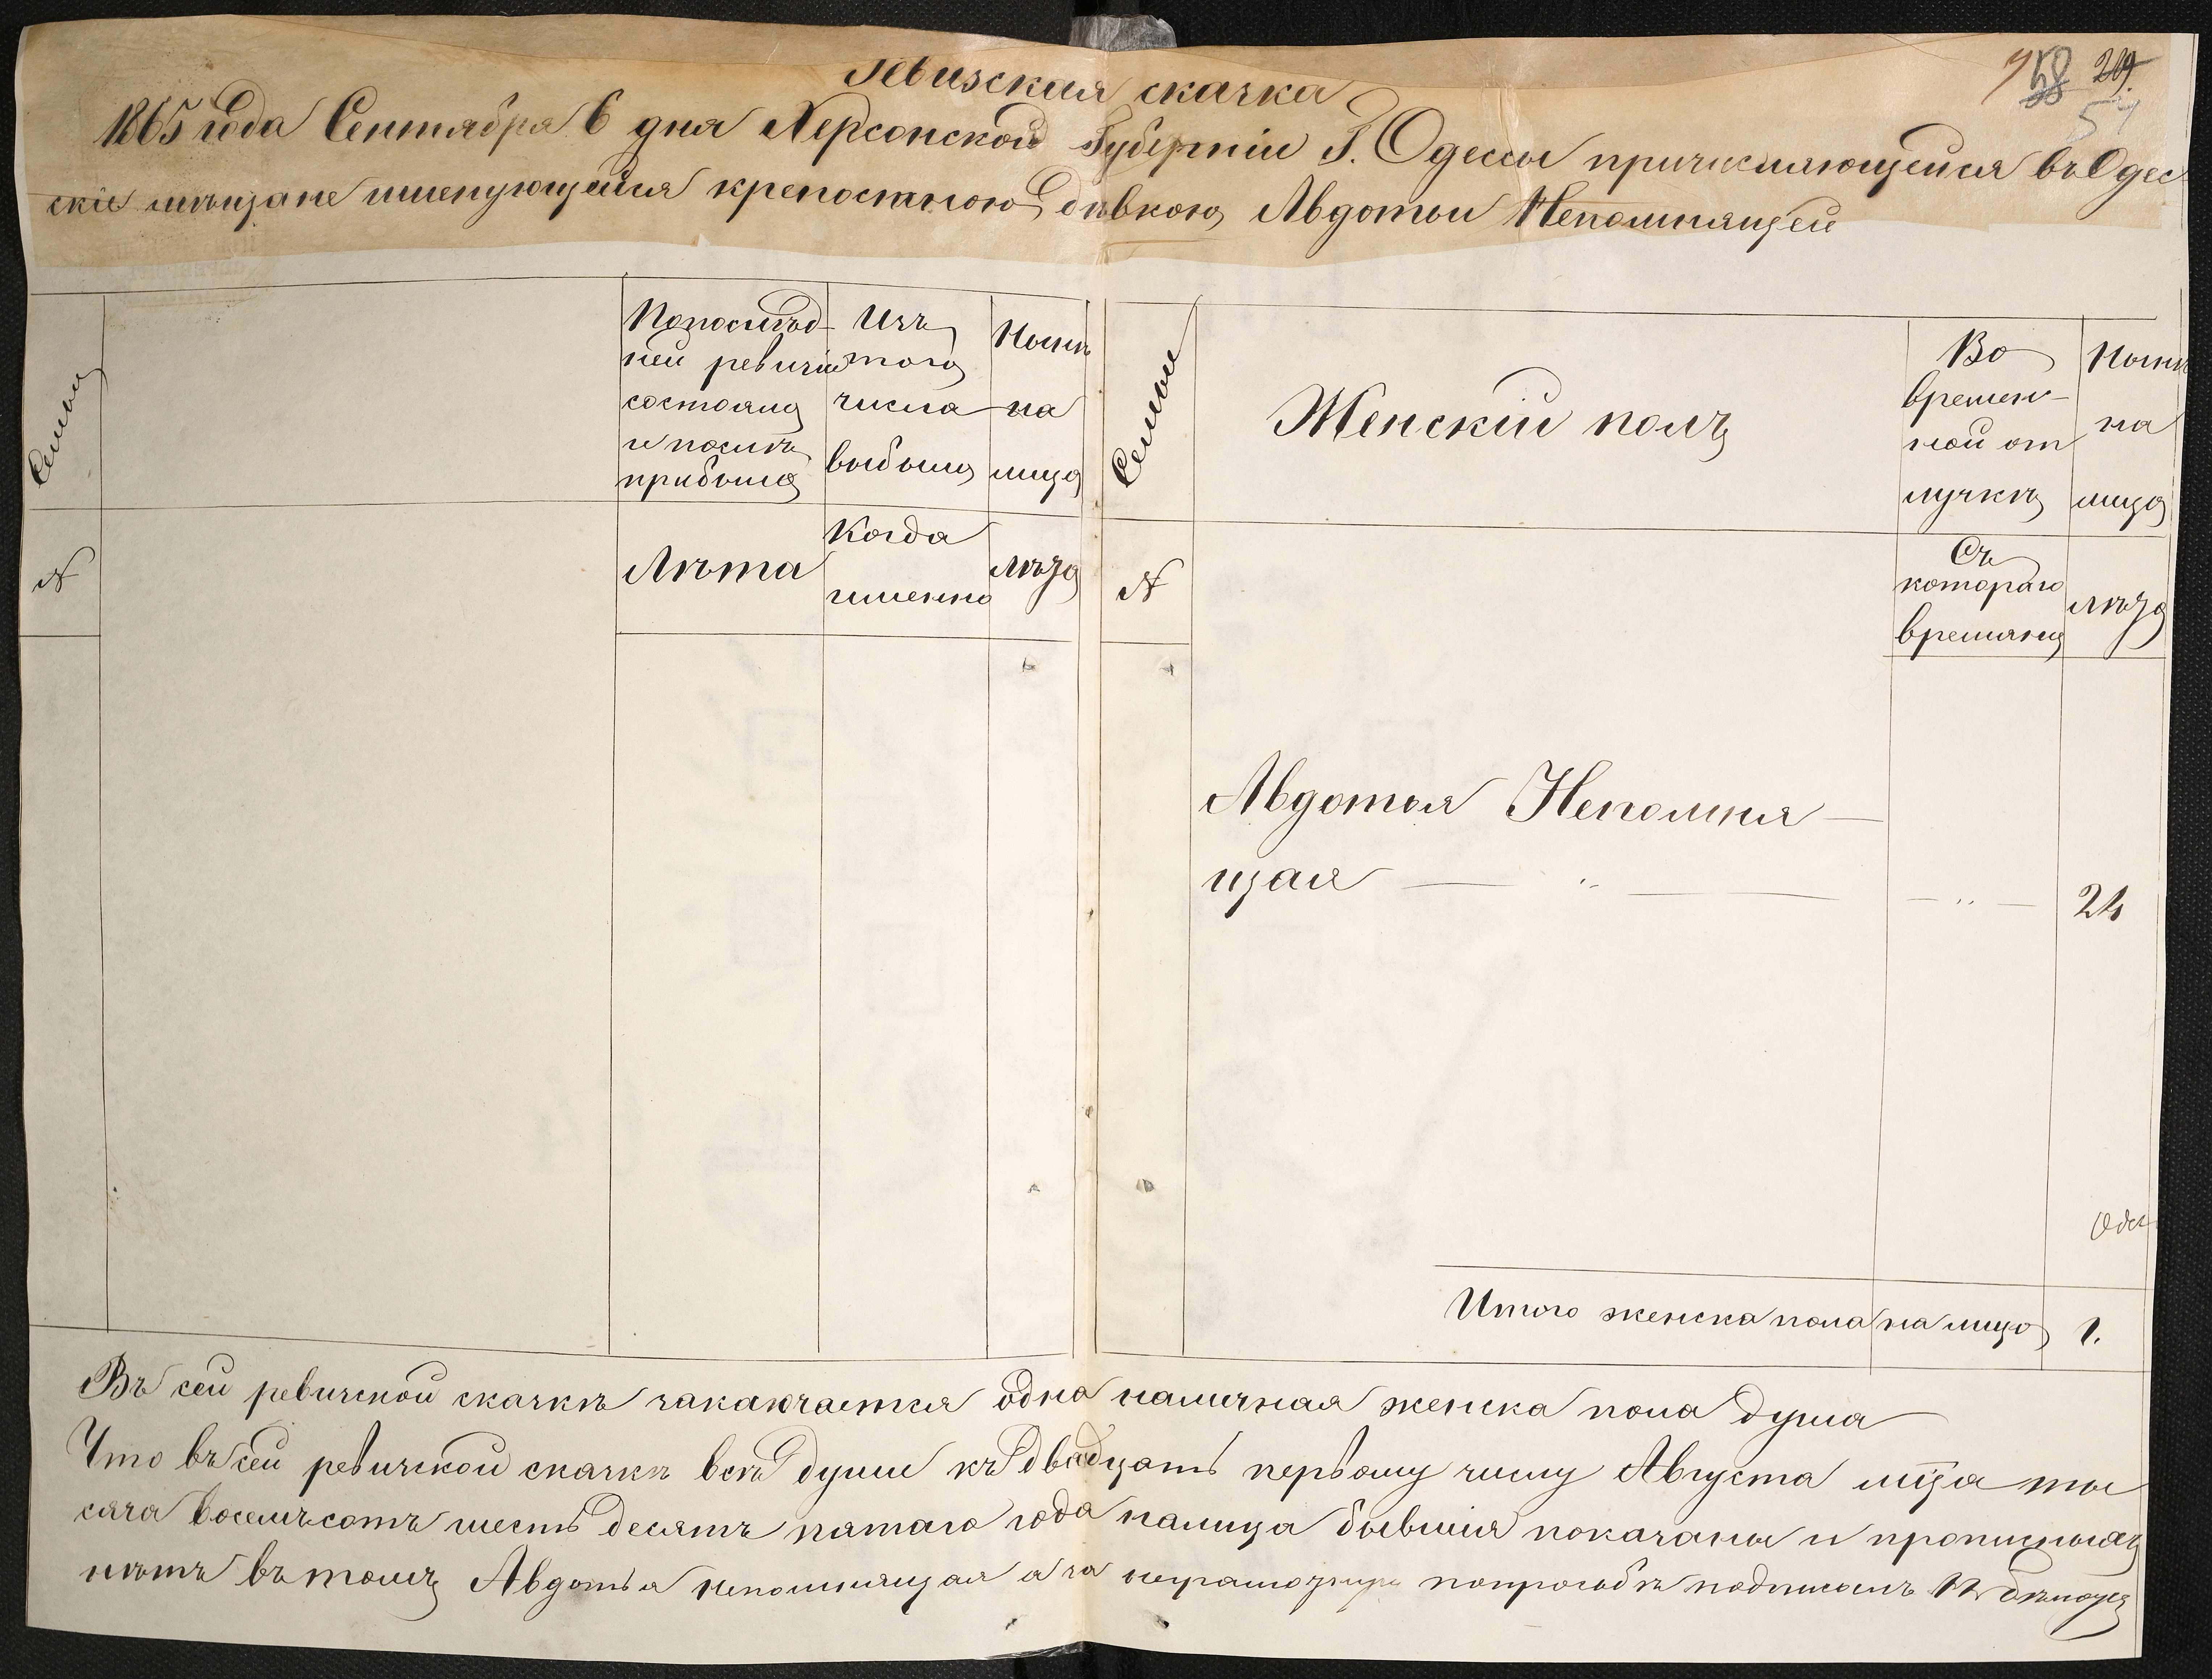 Ревизская сказка
1865 года Сентября 6 дня Херсонской Губерніи Г. Одессы причисляющейся въ Одес-
скіе мѣщане именующейся крепостною дѣвкою Авдотьи Непомнящей
58 29.
54
Семьи
По послѣд-
ней ревизіи
состояло
и послѣ
прибыло
Изъ
того
числа
выбыло
Нынѣ
на
лицо
Семьи
Женскій полъ
Во
времен-
ной от
лучкѣ
Нынѣ
на
лицо
№
Лѣта
Когда
именно
Лѣта
№
Съ
котораго
времяни
лѣта
Авдотья Непомня-
щая — „ — — „ — 24
Итого женска пола на лицо 1.
Въ сей ревизской сказкѣ заключается одна наличная женска пола душа
Что въ сей ревизской сказкѣ всѣ души къ двадцать первому числу Августа мца ты
сяча восемъсотъ шесть десятъ пятаго года налицо бывшия показаны и прописныхъ
нѣтъ въ томъ Авдотья непомнящая а за неграмотную попрозьбѣ подписалъ